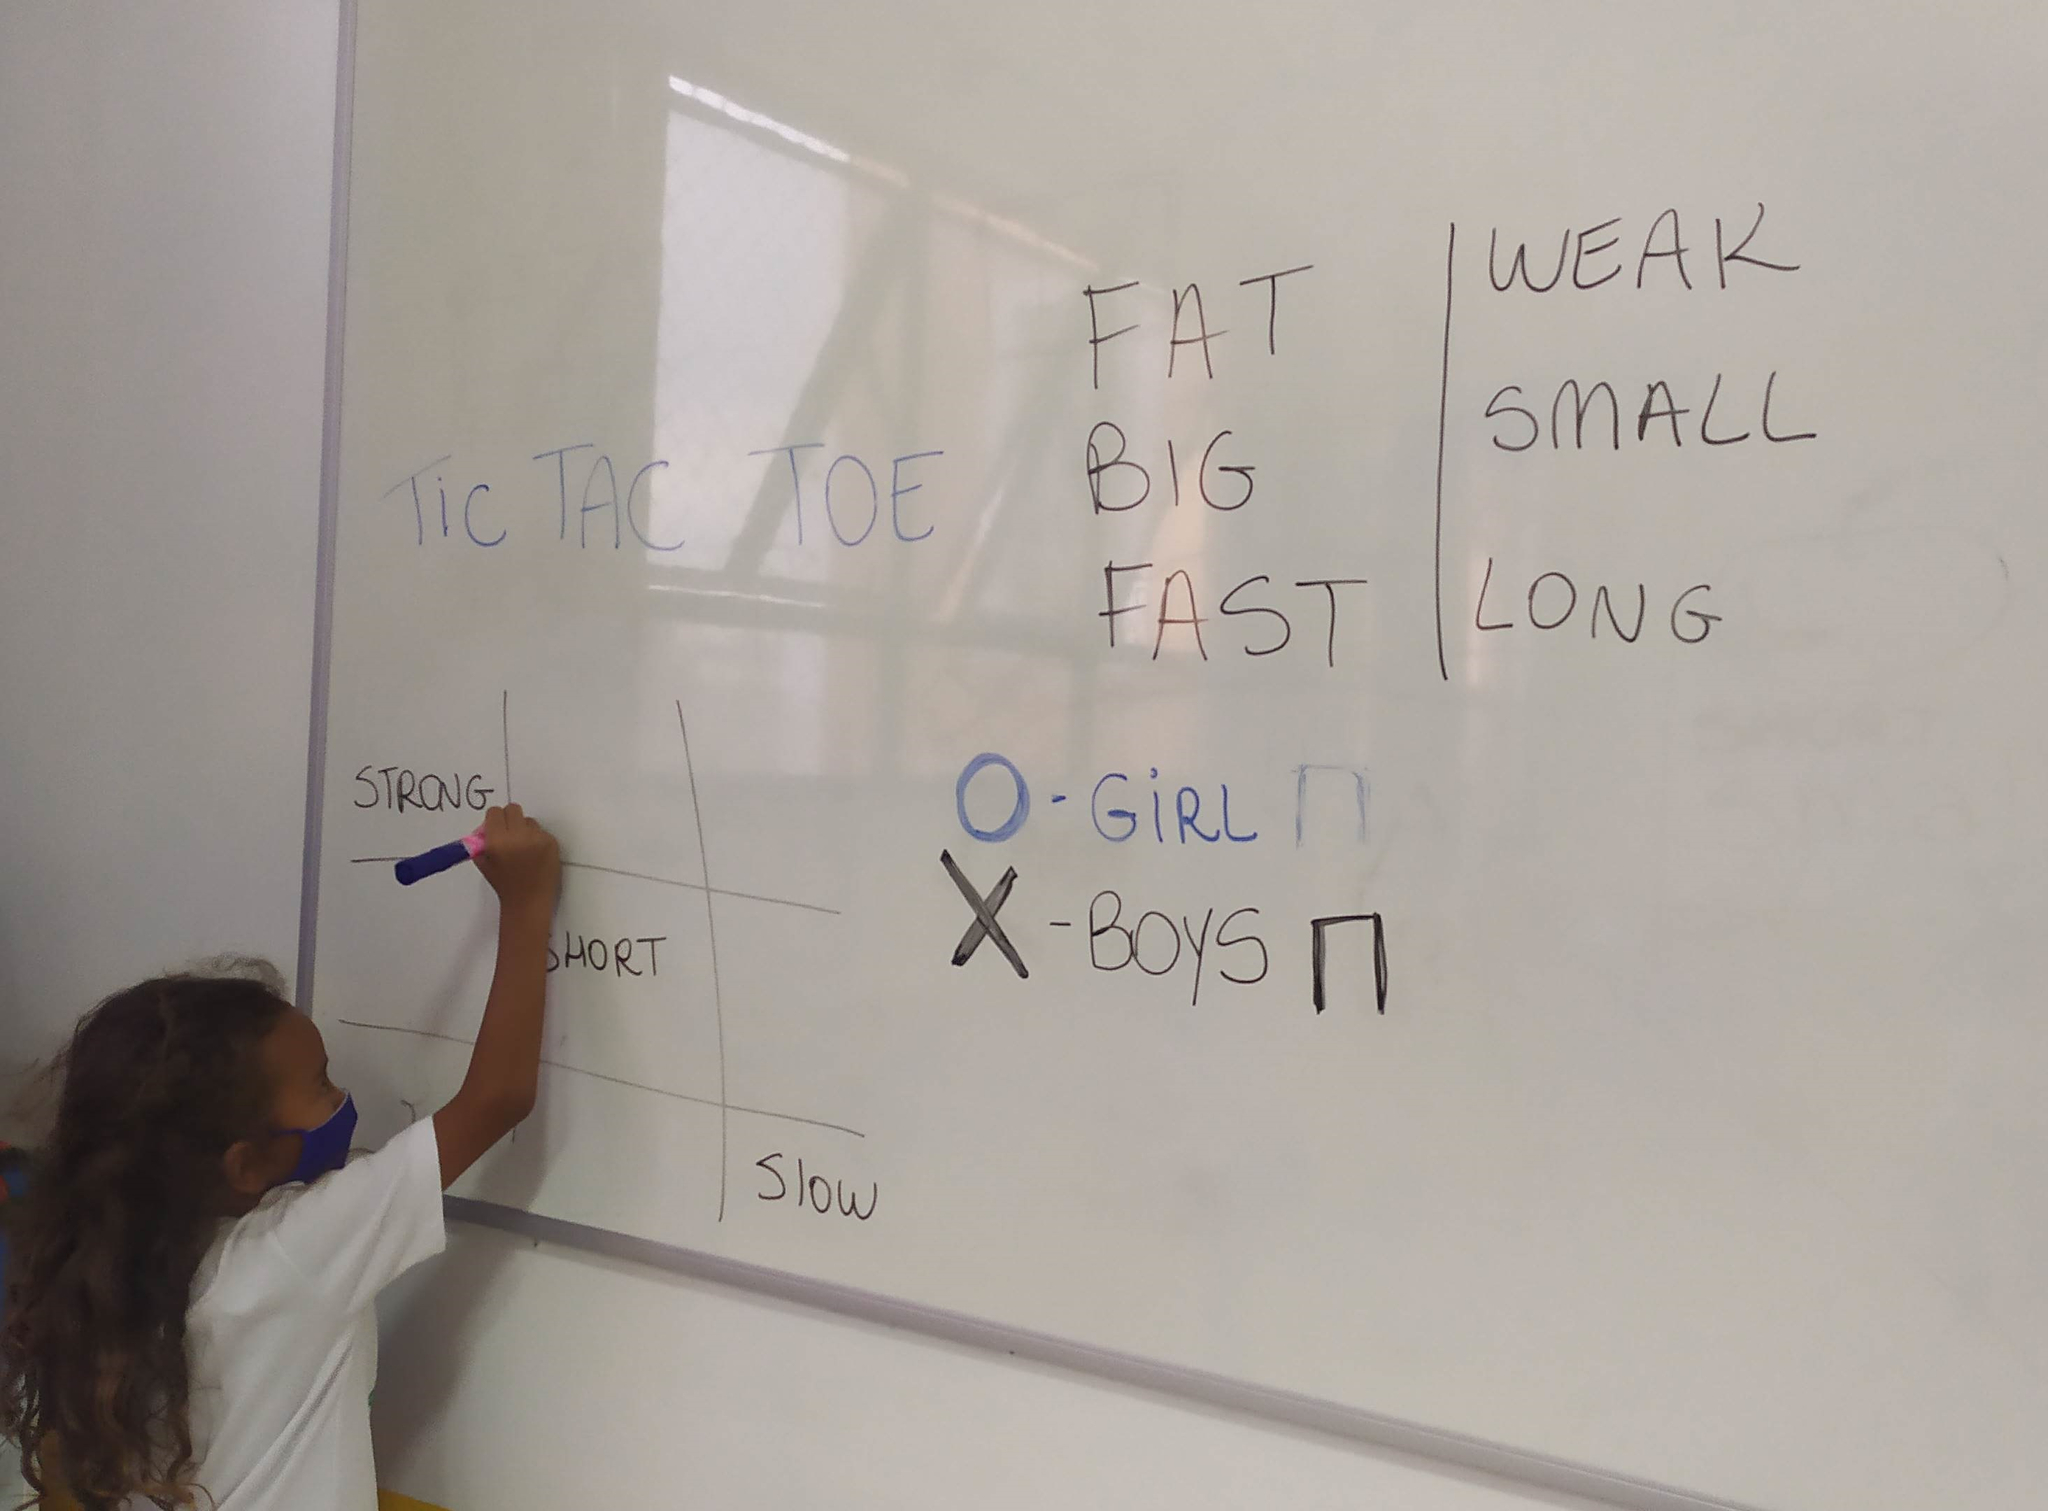 TiC TAC TOE
FAT
BIG
FAST
WEAK
SMALL
LONG
STRONG
SHORT
Slow
O - GiRL
X - BOYS